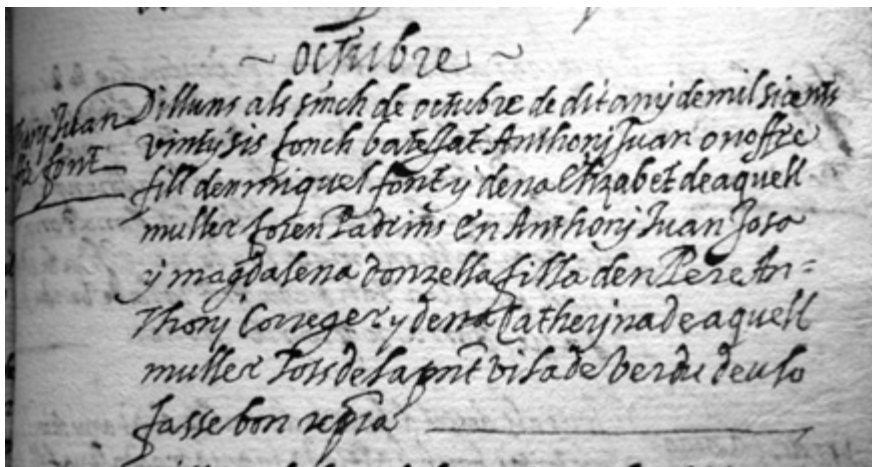 ~ octubre ~
Juan
font
Dilluns als sinch de octubre de dit any de mil sicents
vintysis fonch batejat Anthonj Juan onoffre
fill den miquel font y dena Elizabet de aquell
muller foren Padrins En Anthonj Juan Josa
y magdalena donzella filla den Pere An=
thonj Correger y dena Catherjna de aquell
muller tots de la pnt vila de Verdu deu lo
fasse bon